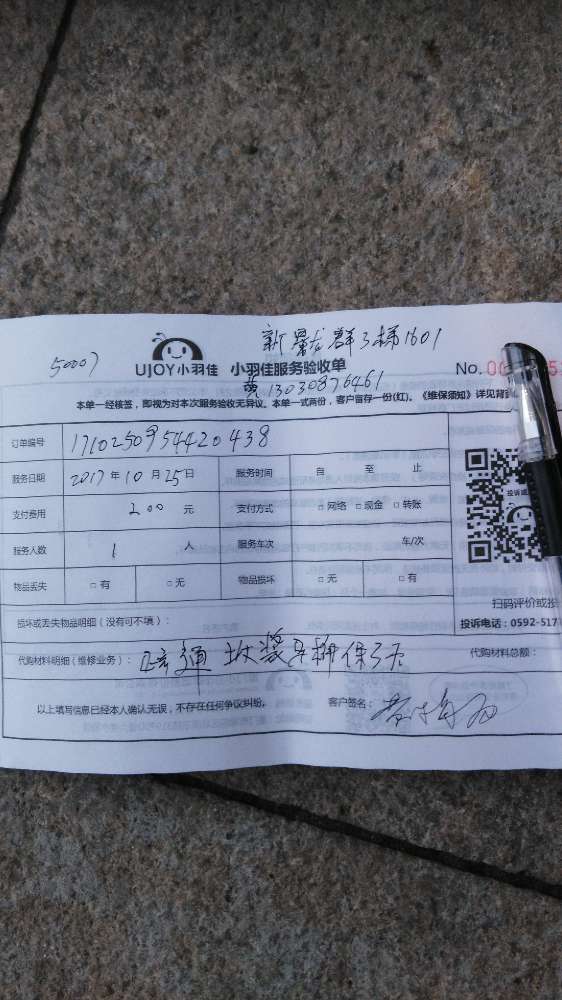 新景龙群3梯1601
50007
UJOY小羽佳 小羽佳服务验收单
No.
黄13030876461
本单一经核签，即视为对本次服务验收无异议。本单一式两份，客户留存一份(红)。《维保须知》详见背
订单编号 1710250954420438
服务日期 2017年10月25日 服务时间 自 至 止
支付费用 200 元 支付方式 □网络 □现金 □转账
服务人数 1 人 服务车次 车/次
物品丢失 □有 □无 物品损坏 □无 □有
扫码评价或投
损坏或丢失物品明细（没有可不填）：
投诉电话：0592-517
代购材料明细（维修业务）： 通 保3天
代购材料总额：
以上填写信息已经本人确认无误，不存在任何争议纠纷。 客户签名：